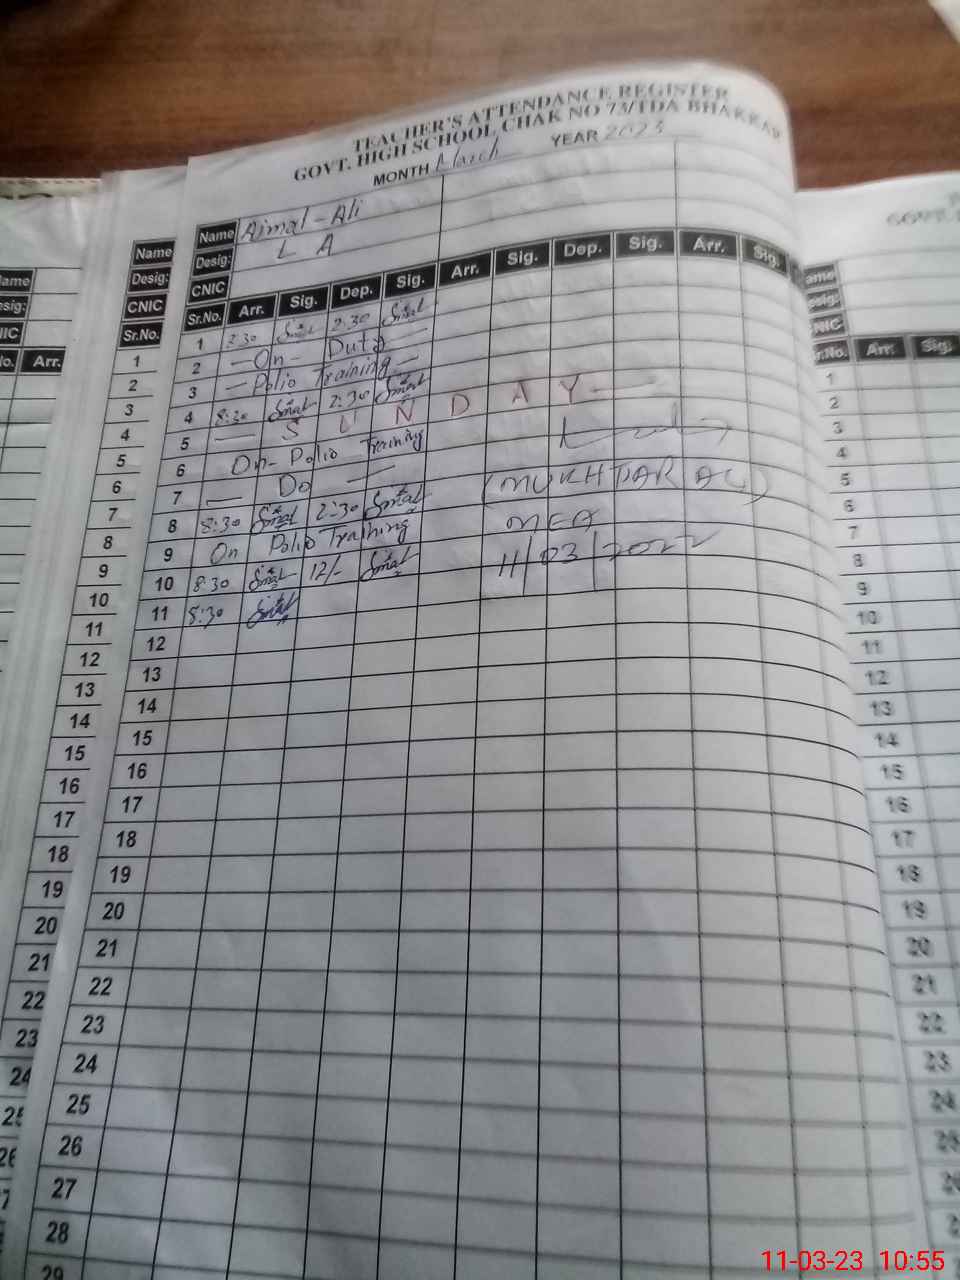 TEACHER'S ATTENDANCE REGISTER
GOVT. HIGH SCHOOL CHAK NO 73/TDA BHAKKAR
MONTH March YEAR 2023
Name Ajmal-Ali
Desig: L A
CNIC
Sr.No. Arr. Sig. Dep. Sig. Arr. Sig. Dep. Sig. Arr. Sig.
1 2:30
2 — On - Duty —
3 — Polio Training —
4 8:30 2:30
5 — S U N D A Y —
6 On - Polio Training
7 — Do —
8 8:30 2:30 (MUKHTIAR ALI)
9 On Polio Training MEA
10 8:30 12/- 11/03/2022
11 8:30
12
13
14
15
16
17
18
19
20
21
22
23
24
25
26
27
28
29
Name
Desig:
CNIC
Sr.No.
1
2
3
4
5
6
7
8
9
10
11
12
13
14
15
16
17
18
19
20
21
22
23
24
25
26
Arr.
Sr.No. Arr. Sig.
1
2
3
4
5
6
7
8
9
10
11
12
13
14
15
16
17
18
19
20
21
22
23
24
25
11-03-23 10:55